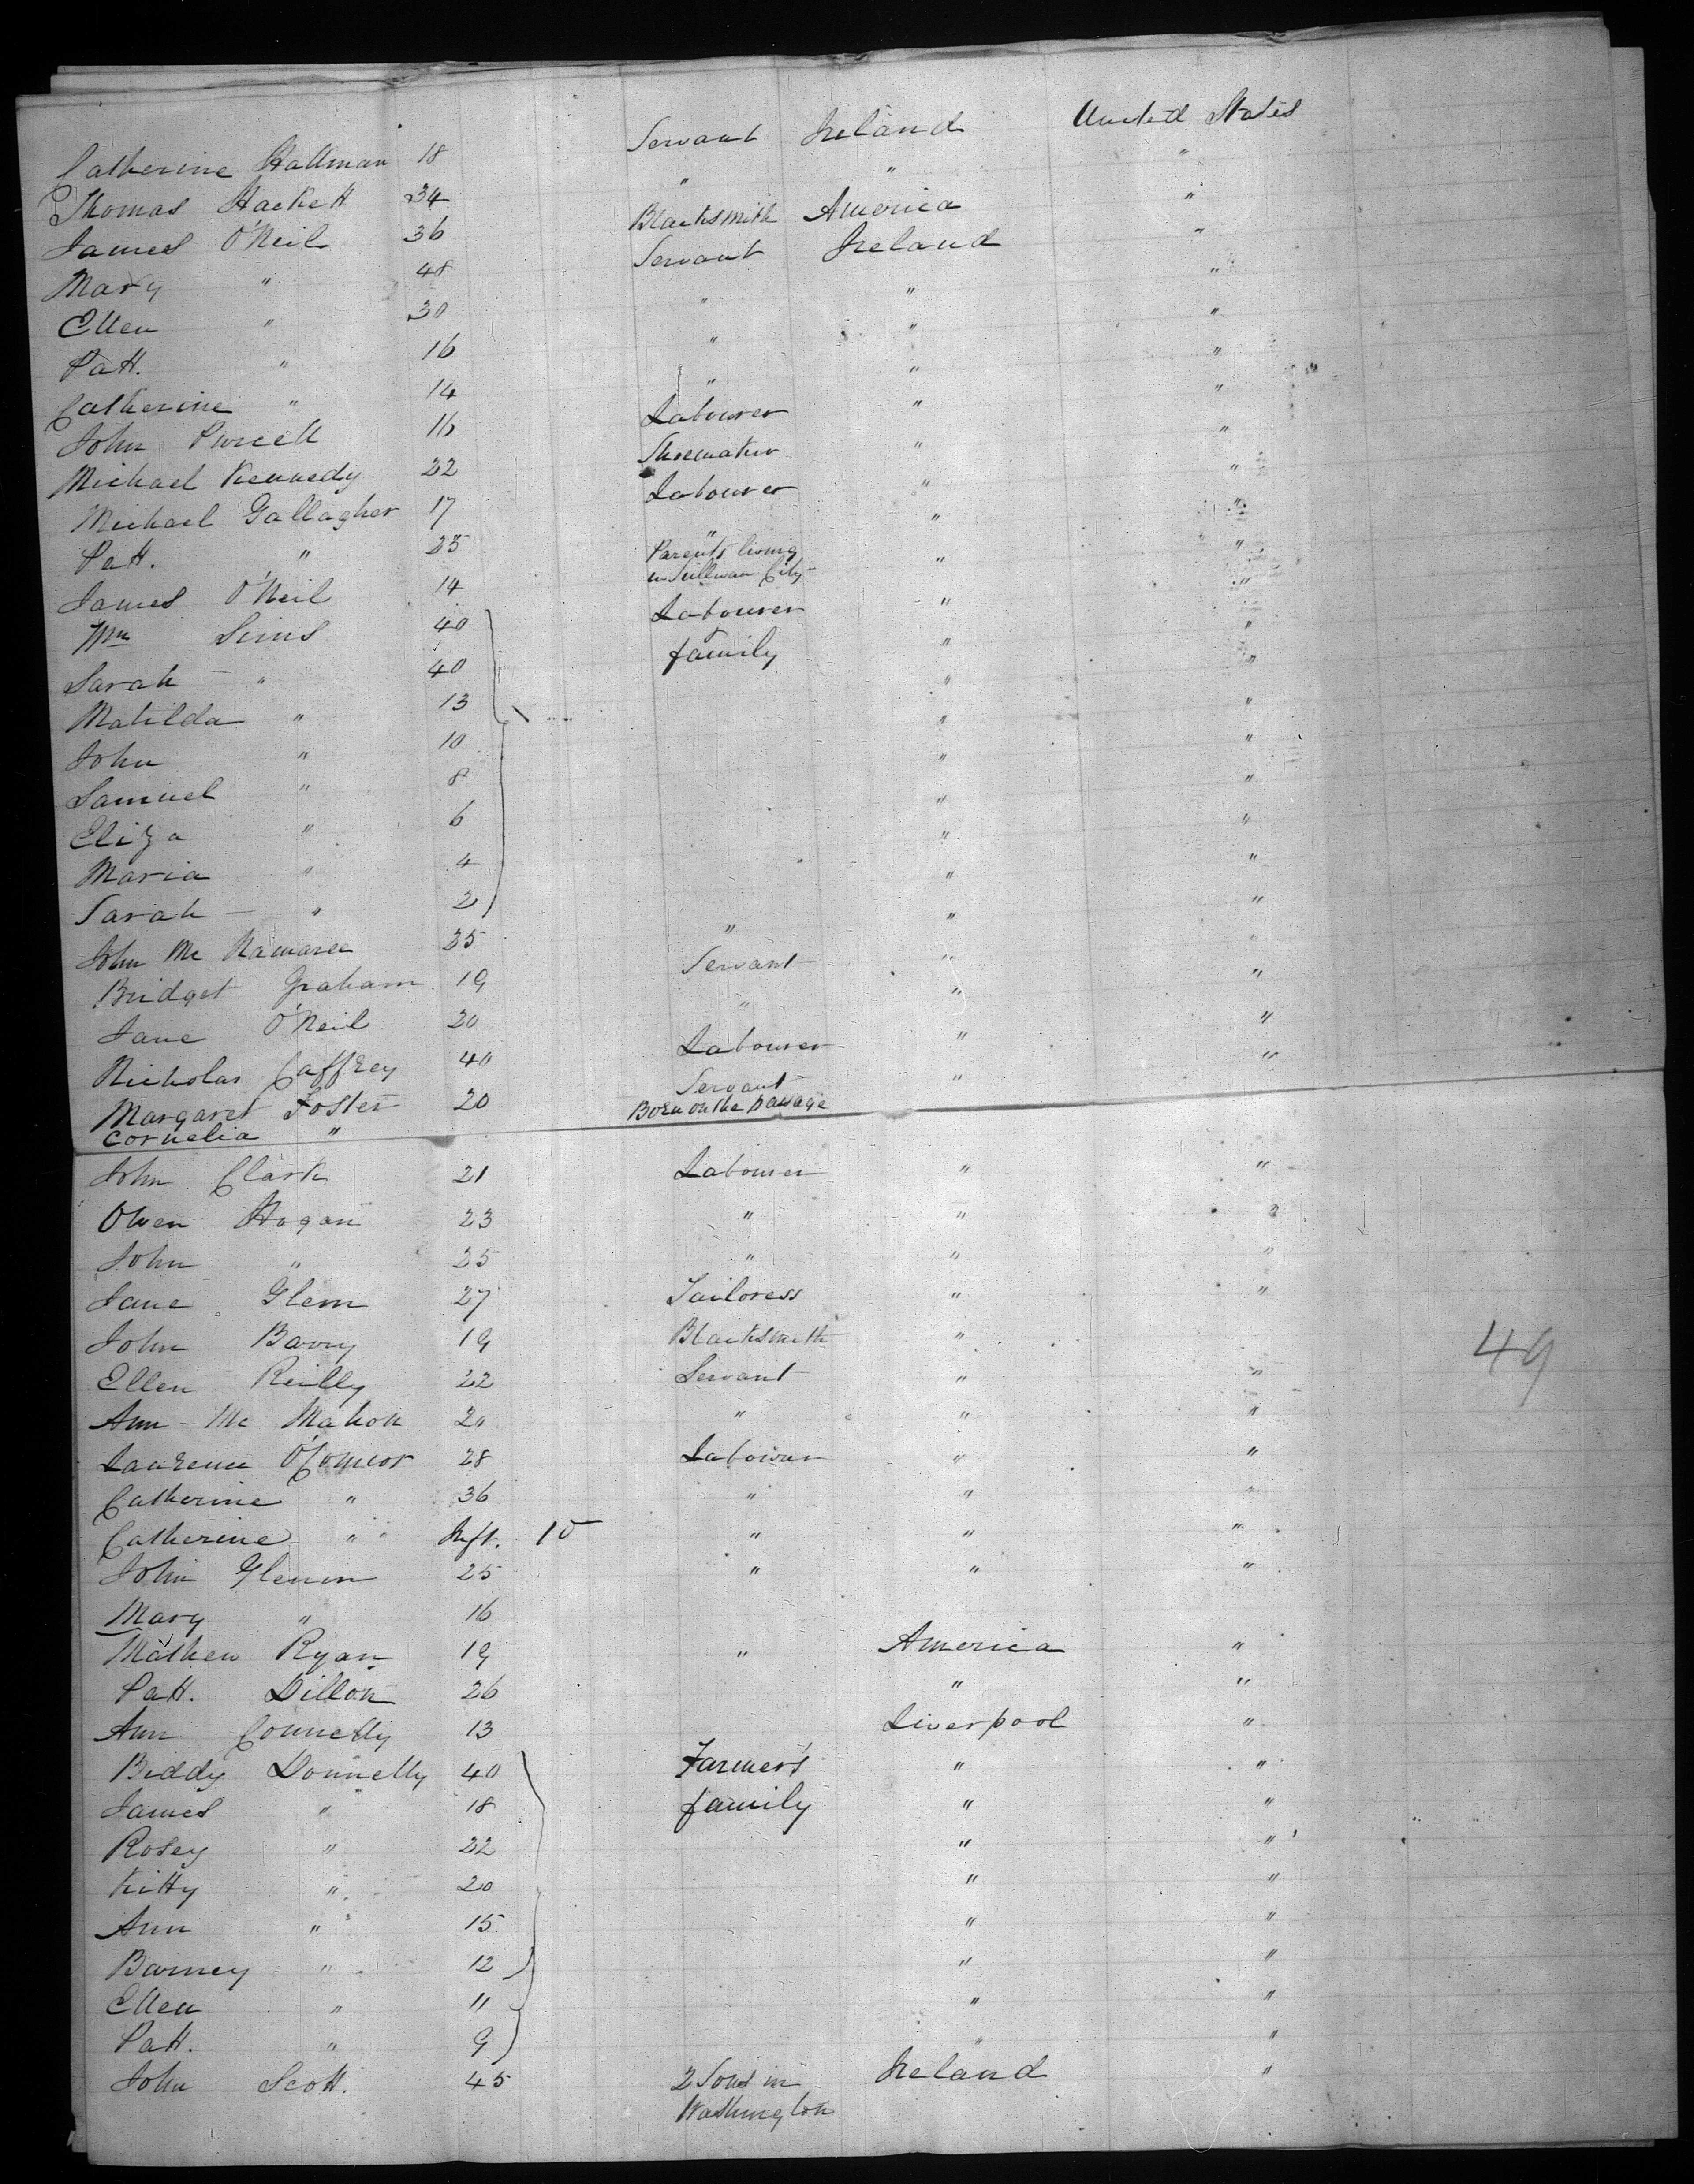 Catherine Hallman 18 Servant Ireland United States
Thomas Hackett 34 " " "
James O'Neil 36 Blacksmith America "
Mary " 48 Servant Ireland "
Ellen " 30 " " "
Patt. " 16 " " "
Catherine " 14 " " "
John Purcell 16 Labourer " "
Michael Kennedy 22 Shoemaker " "
Michael Gallagher 17 Labourer " "
Patt. " 25 " " "
James O'Neil 14 Parents living " "
in Sullivan City
Wm Sims 40 Labourer " "
Sarah " 40 family " "
Matilda " 13 " "
John " 10 " "
Samuel " 8 " "
Eliza " 6 " "
Maria " 4 " "
Sarah " 2 " "
John Mc Namara 35 " " "
Bridget Graham 19 Servant " "
Jane O'Neil 20 " " "
Nicholas Caffrey 40 Labourer " "
Margaret Foster 20 Servant " "
Cornelia " Born on the passage
John Clark 21 Labourer " "
Owen Hogan 23 " " "
John " 25 " " "
Jane Glenn 27 Tailoress " "
John Barry 19 Blacksmith "
49
Ellen Reilly 22 Servant " "
Ann Mc Mahon 20 " " "
Laurence O'Connor 28 Labourer " "
Catherine " 36 " " "
Catherine " Inft. 10 " " "
John Glennon 25 " " "
Mary " 16
Mathew Ryan 19 " America "
Patt. Dillon 26 " "
Ann Connelly 13 Liverpool "
Biddy Donnelly 40 Farmer's " "
James " 18 family " "
Rosey " 22 " "
Kitty " 20 " "
Ann " 15 " "
Barney " 12 " "
Ellen " 11 " "
Patt. " 9 " "
John Scott. 45 2 Sons in Ireland "
Washington